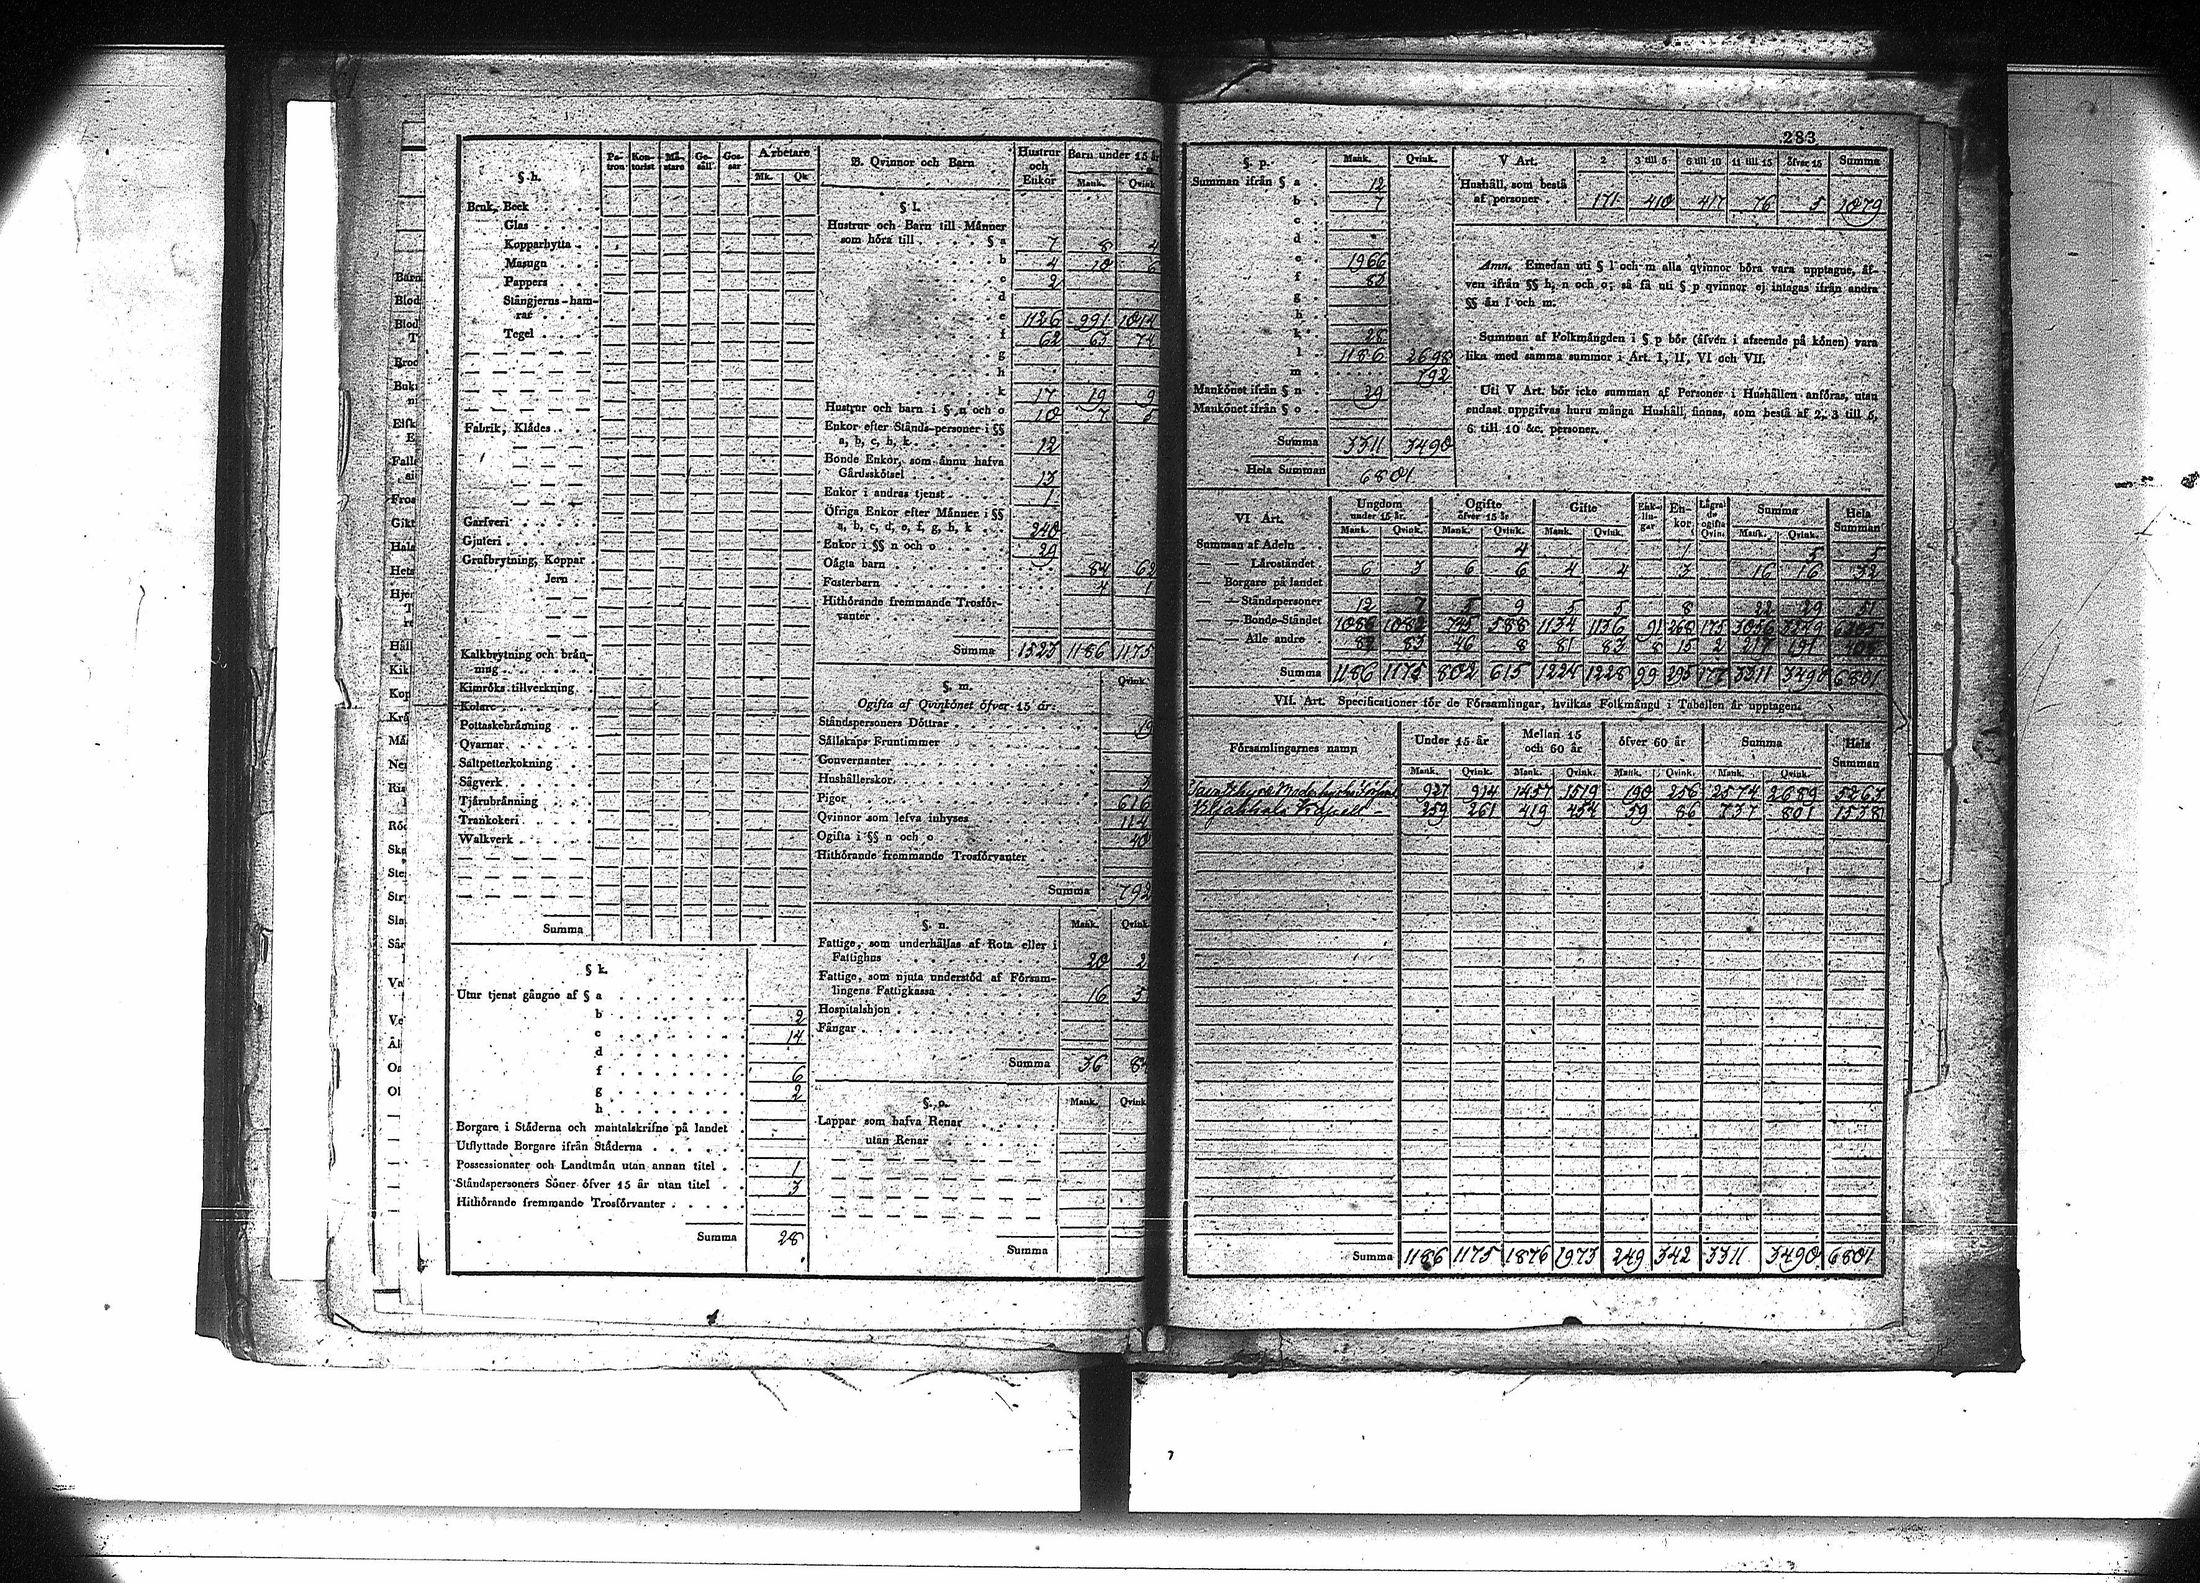 283
§ h.
Patron Kontorist Mästare Gesäll Gossar Arbetare
Mk. Qk
Bruk, Beck
Glas
Kopparhytta
Masugn
Pappers
Stångjerns-hamrar
Tegel
Fabrik, Klädes
Garfveri
Gjuteri
Grufbrytning, Koppar
Jern
Kalkbrytning och bränning
Kimröks tillverkning
Kolare
Pottaskebränning
Qvarnar
Saltpetterkokning
Sågverk
Tjärubränning
Trankokeri
Walkverk
Summa
§ k.
Utur tjenst gångne af § a
b 2
c 14
d
f 6
g 2
h
Borgare i Städerna och mantalskrifne på landet
Utflyttade Borgare ifrån Städerna
Possessionater och Landtmän utan annan titel 1
Ståndspersoners Söner öfver 15 år utan titel 3
Hithörande fremmande Trosförvanter
Summa 28
B. Qvinnor och Barn
Hustrur och Enkor
Barn under 15 år
Mank. Qvink
§ l.
Hustrur och Barn till Männer
som höra till § a 7 8 4
b 4 10 6
c 2
d
e 1126 991 1014
f 62 63 74
g
h
k 17 19 9
Hustrur och barn i § n och o 10 7 5
Enkor efter Stånds-personer i §§
a, b, c, h, k 12
Bonde Enkor, som ännu hafva
Gårdsskötsel 13
Enkor i andras tjenst 1
Öfriga Enkor efter Männer i §§
a, b, c, d, e, f, g, h, k 240
Enkor i §§ n och o 29
Oägta barn 84 62
Fosterbarn 4 1
Hithörande fremmande Trosförvanter
Summa 1523 1186 1175
§. m.
Qvink.
Ogifta af Qvinkönet öfver 15 år:
Ståndspersoners Döttrar 19
Sällskaps Fruntimmer
Gouvernanter
Hushållerskor 3
Pigor 616
Qvinnor som lefva inhyses 114
Ogifta i §§ n och o 40
Hithörande fremmande Trosförvanter
Summa 792
§. n.
Mank. Qvink
Fattige, som underhållas af Rota eller i
Fattighus 20 2
Fattige, som njuta understöd af Församlingens Fattigkassa 16 5
Hospitalshjon
Fångar
Summa 36 84
§. o.
Mank. Qvink
Lappar som hafva Renar
utan Renar
Summa
§. p.
Mank. Qvink.
Summan ifrån § a 12
b 7
c
d
e 1966
f 83
g
h
k 28
l 1186 2698
m 792
Mankönet ifrån § n 29
Mankönet ifrån § o
Summa 3311 3490
Hela Summan 6801
V Art.
2 3 till 5 6 till 10 11 till 15 öfver 15 Summa
Hushåll, som bestå
af personer 171 410 417 76 5 1079
Anm. Emedan uti § l och m alla qvinnor böra vara upptagne, äfven ifrån §§ h, n och o; så få uti § p qvinnor ej intagas ifrån andra
§§ än l och m.
Summan af Folkmängden i § p bör (äfven i afseende på könen) vara
lika med samma summor i Art. I, II, VI och VII.
Uti V Art. bör icke summan af Personer i Hushållen anföras, utan
endast uppgifvas huru många Hushåll, finnas, som bestå af 2, 3 till 5,
6 till 10 &c. personer.
VI Art.
Ungdom under 15 år. Ogifte öfver 15 år Gifte Enklingar Enkor Lägrade ogifta Qvin. Summa Hela Summan
Mank. Qvink. Mank. Qvink. Mank. Qvink. Mank. Qvink.
Summan af Adeln 4 1 5 5
— — Läroståndet 6 3 6 6 4 4 3 16 16 32
— — Borgare på landet
— — Ståndspersoner 12 7 5 9 5 5 8 22 29 51
— — Bonde-Ståndet 1086 1082 745 588 1134 1136 91 268 175 3056 3249 6305
— — Alle andre 82 83 46 8 81 83 8 15 2 217 191 408
Summa 1186 1175 802 615 1224 1228 99 295 177 3311 3490 6801
VII. Art. Specificationer för de Församlingar, hvilkas Folkmängd i Tabellen är upptagen.
Församlingarnes namn
Under 15 år Mellan 15 och 60 år öfver 60 år Summa Hela Summan
Mank. Qvink. Mank. Qvink. Mank. Qvink. Mank. Qvink.
Moderkyrko 927 914 1457 1519 190 256 2574 2689 5263
Kapell 259 261 419 454 59 86 737 801 1538
Summa 1186 1175 1876 1973 249 342 3311 3490 6801